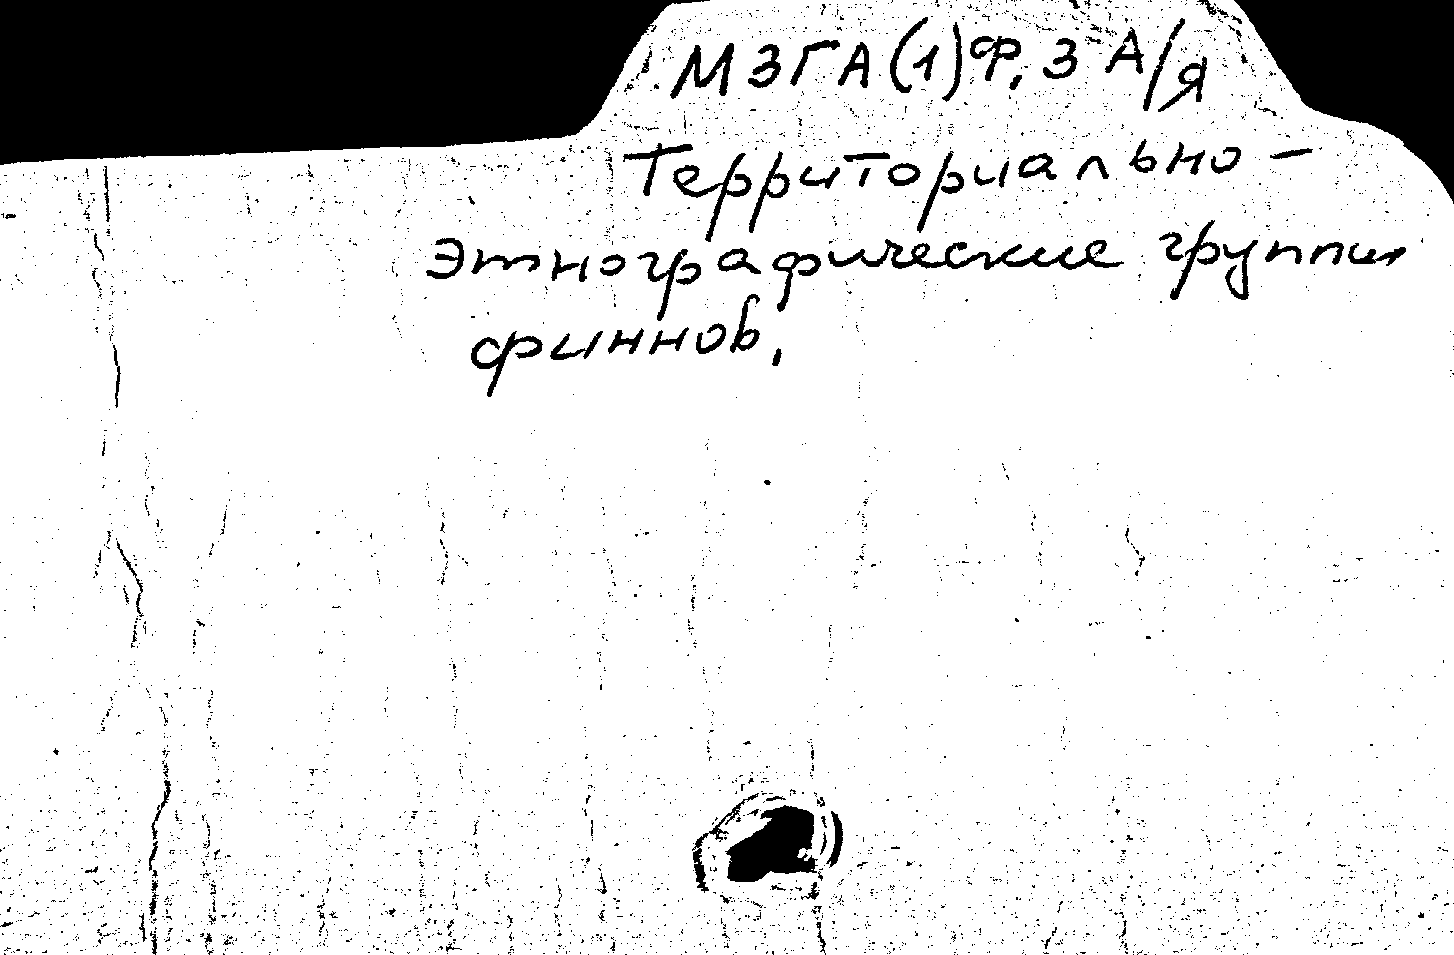 М3ГА(1)Ф,3 А/Я
Территориально -
этнографические группы
финнов,